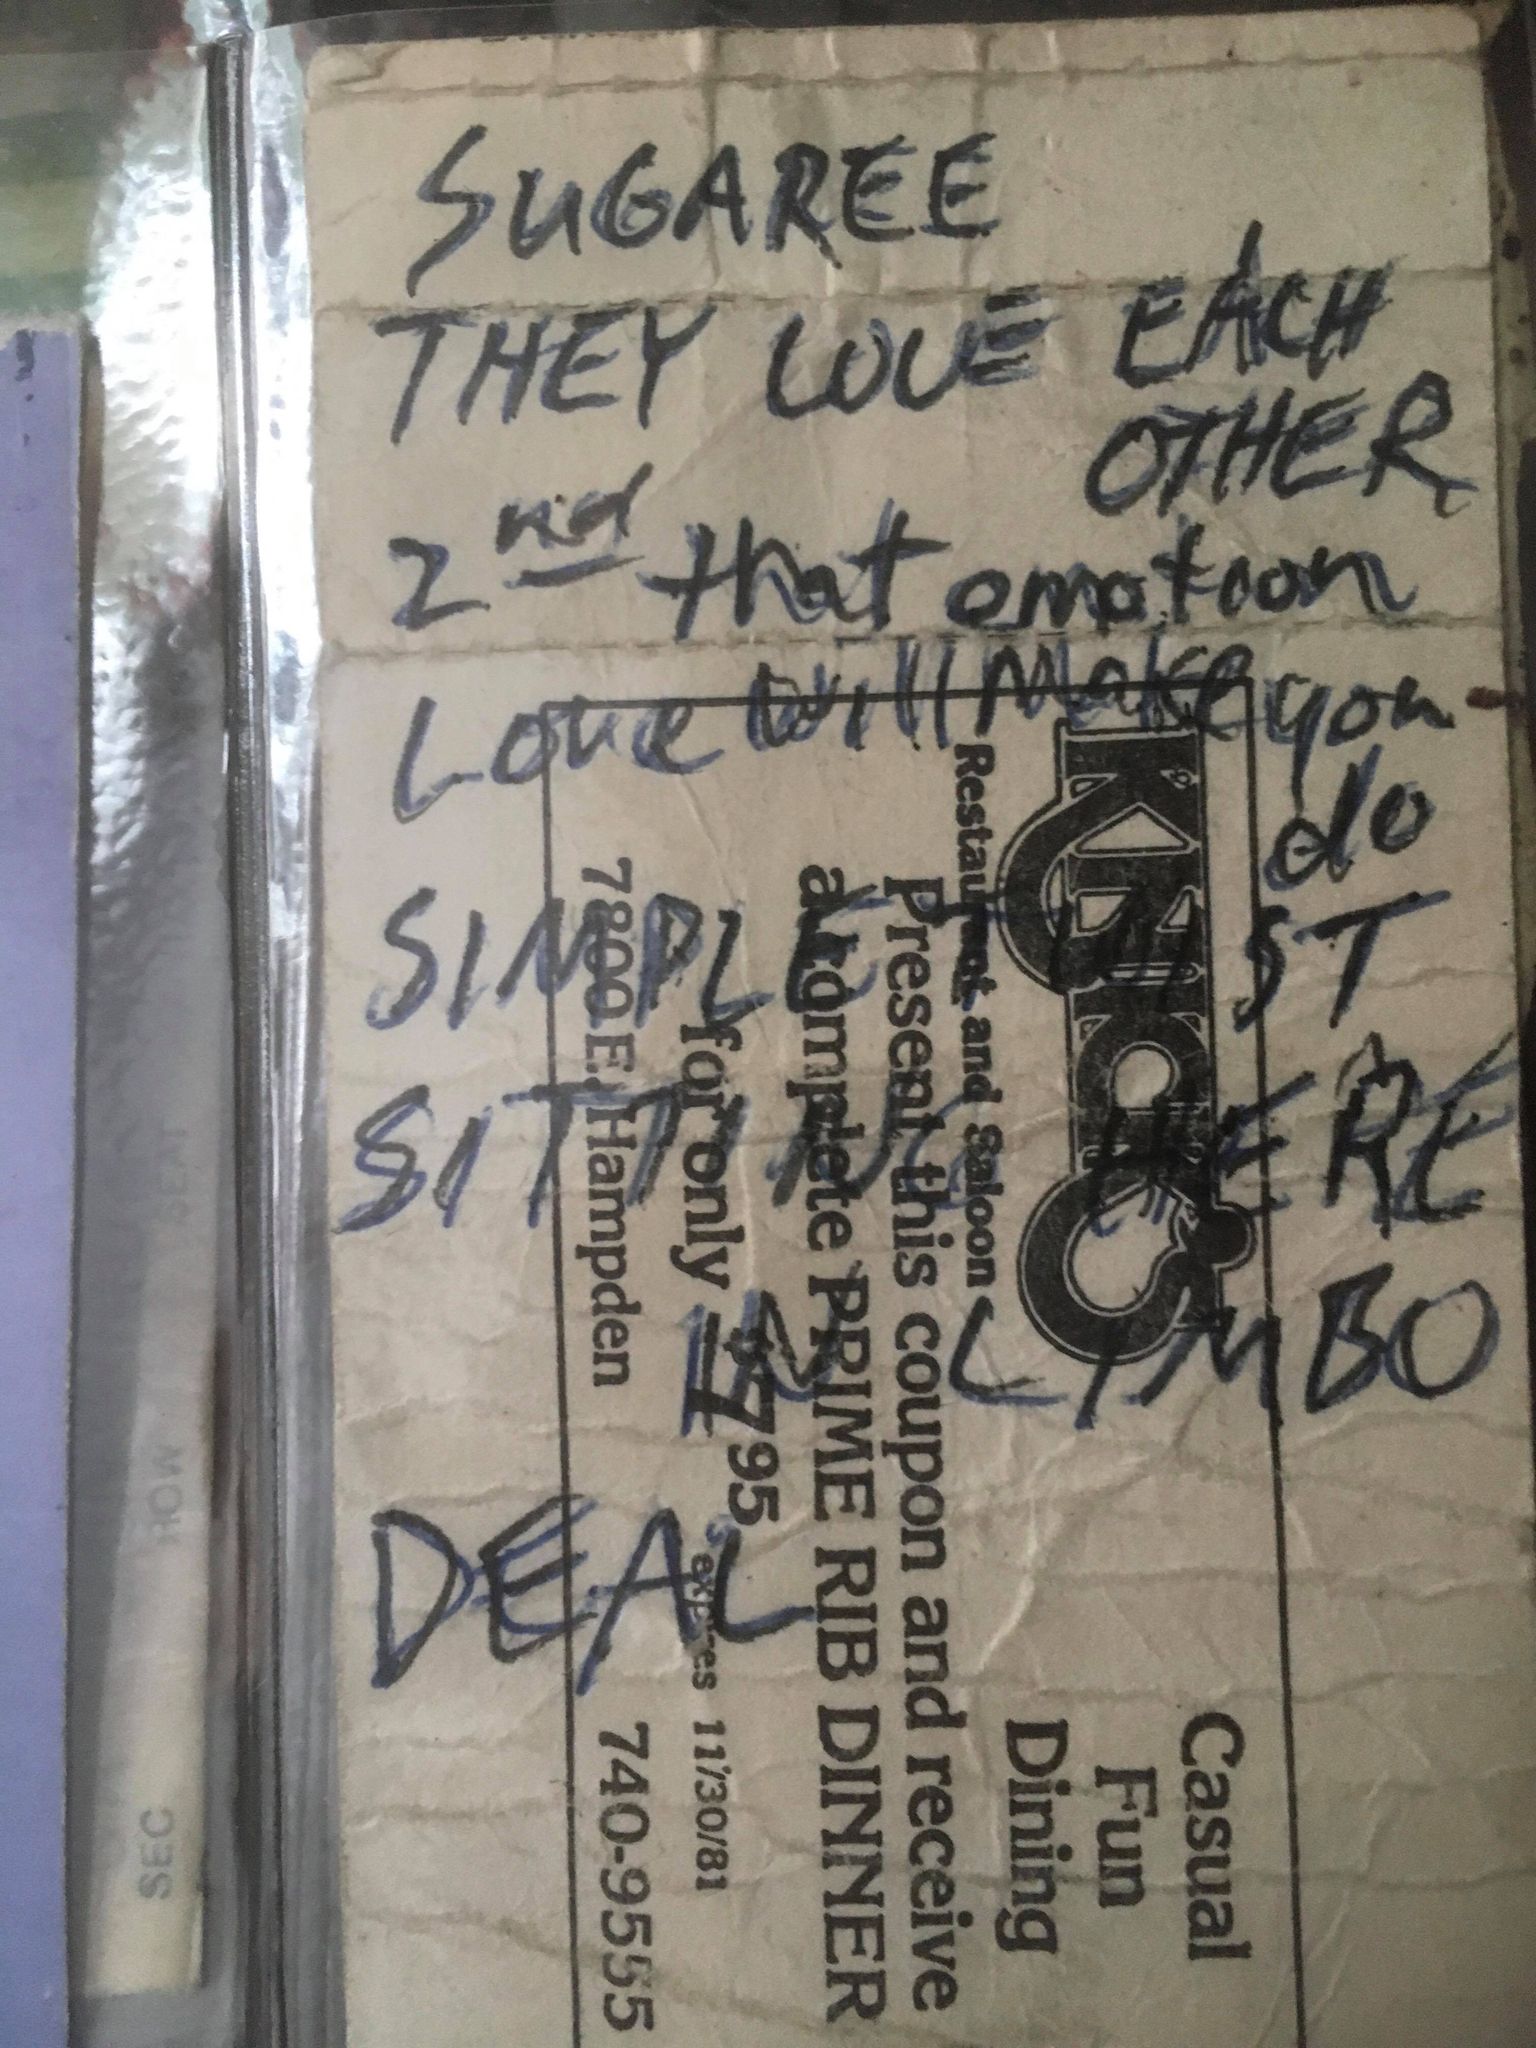 SUGAREE
THEY LOVE EACH
OTHER
2nd that emotion
Love will Make you
do
SIMPLE TWIST
SITTING HERE
IN LIMBO
DEAL
Restaurant and Saloon
Present this coupon and receive
a complete PRIME RIB DINNER
for only $795
expires 11/30/81
7800 E. Hampden
740-9555
Casual
Fun
Dining
SEAT
ROW
SEC